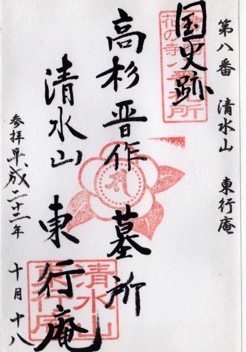 第八番 清水山 東行庵
国史跡
高杉晋作墓所
清水山 東行庵
参拝 平成二十二年 十月十八
清水山東行庵